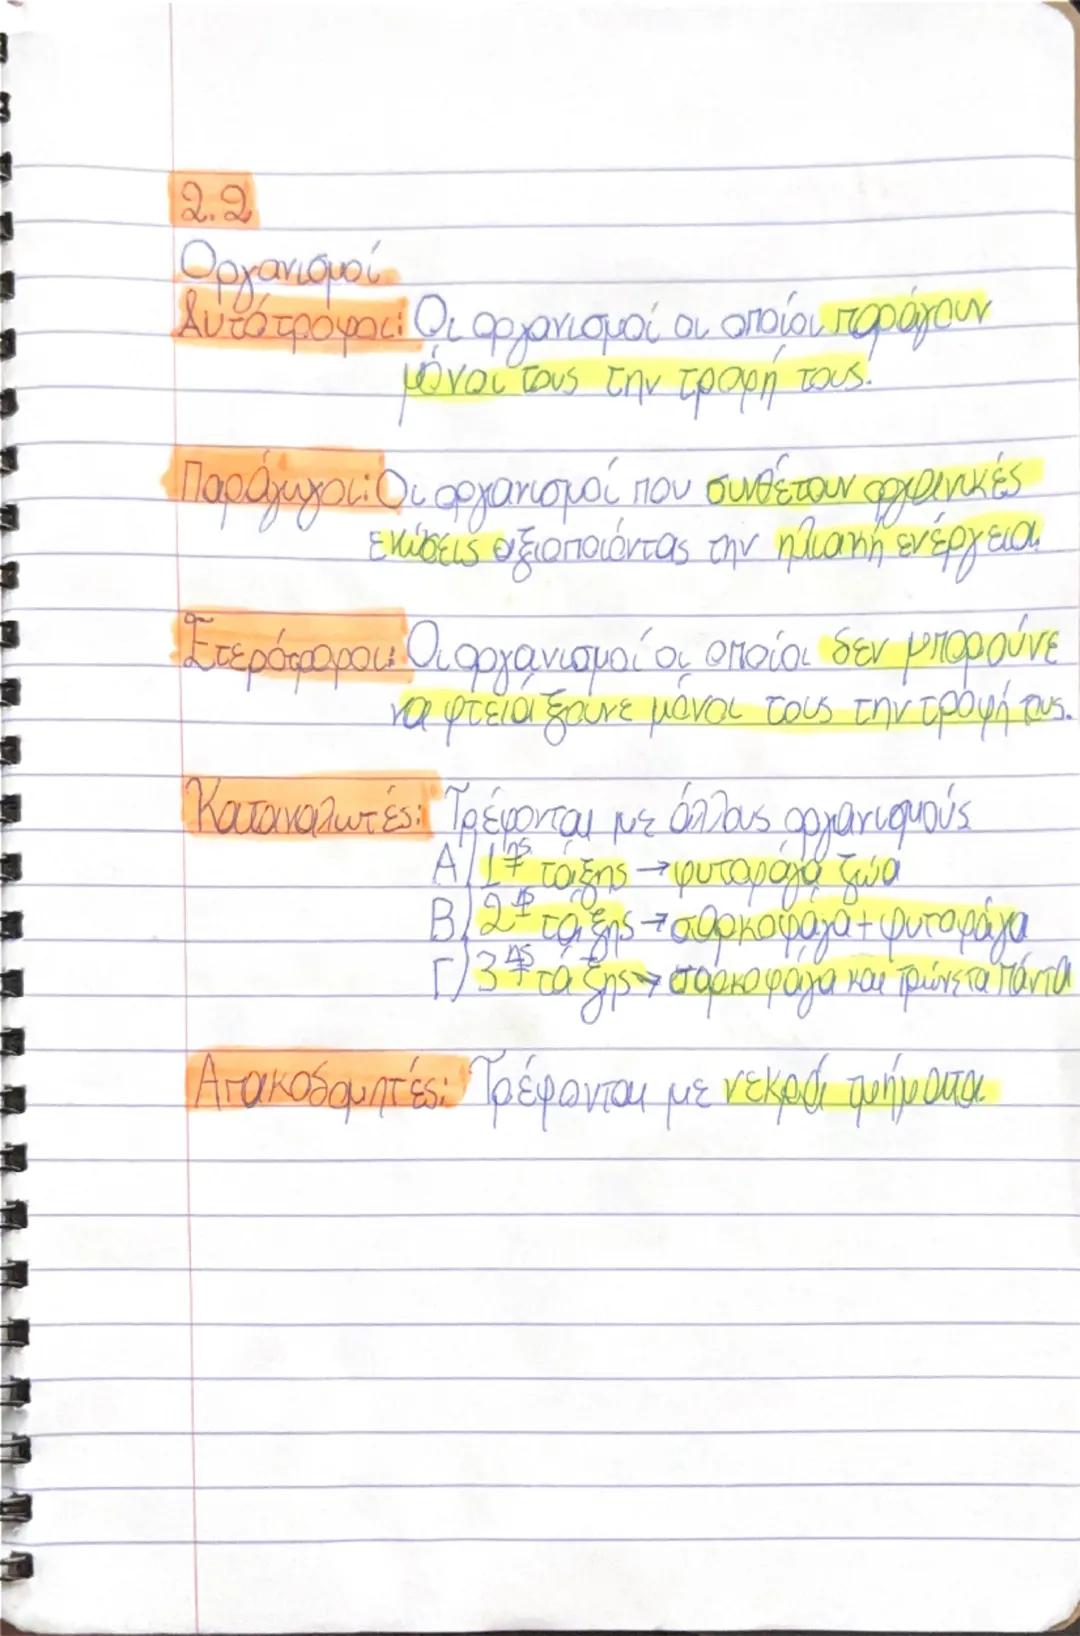 2.2
Οργανισμοί
Αυτότροφοι: Οι οργανισμοί οι οποίοι παράγουν
μόνοι τους την τροφή τους.
Παράγωγοι: Οι οργανισμοί που συνθέτουν οργανικές
ενώσεις αξιοποιόντας την ηλιακή ενέργεια.
Ετερότροφοι: Οι οργανισμοί οι οποίοι δεν μπορούνε
να φτειάξουνε μόνοι τους την τροφή τους.
Καταναλωτές: Τρέφονται με άλλους οργανισμούς
Α) 1ης τάξης → φυτοφάγα ζώα
Β) 2ης τάξης → σαρκοφάγα + φυτοφάγα
Γ) 3ης τάξης → σαρκοφάγα και τρώνε τα πάντα
Αποικοδομητές: Τρέφονται με νεκρά τμήματα.